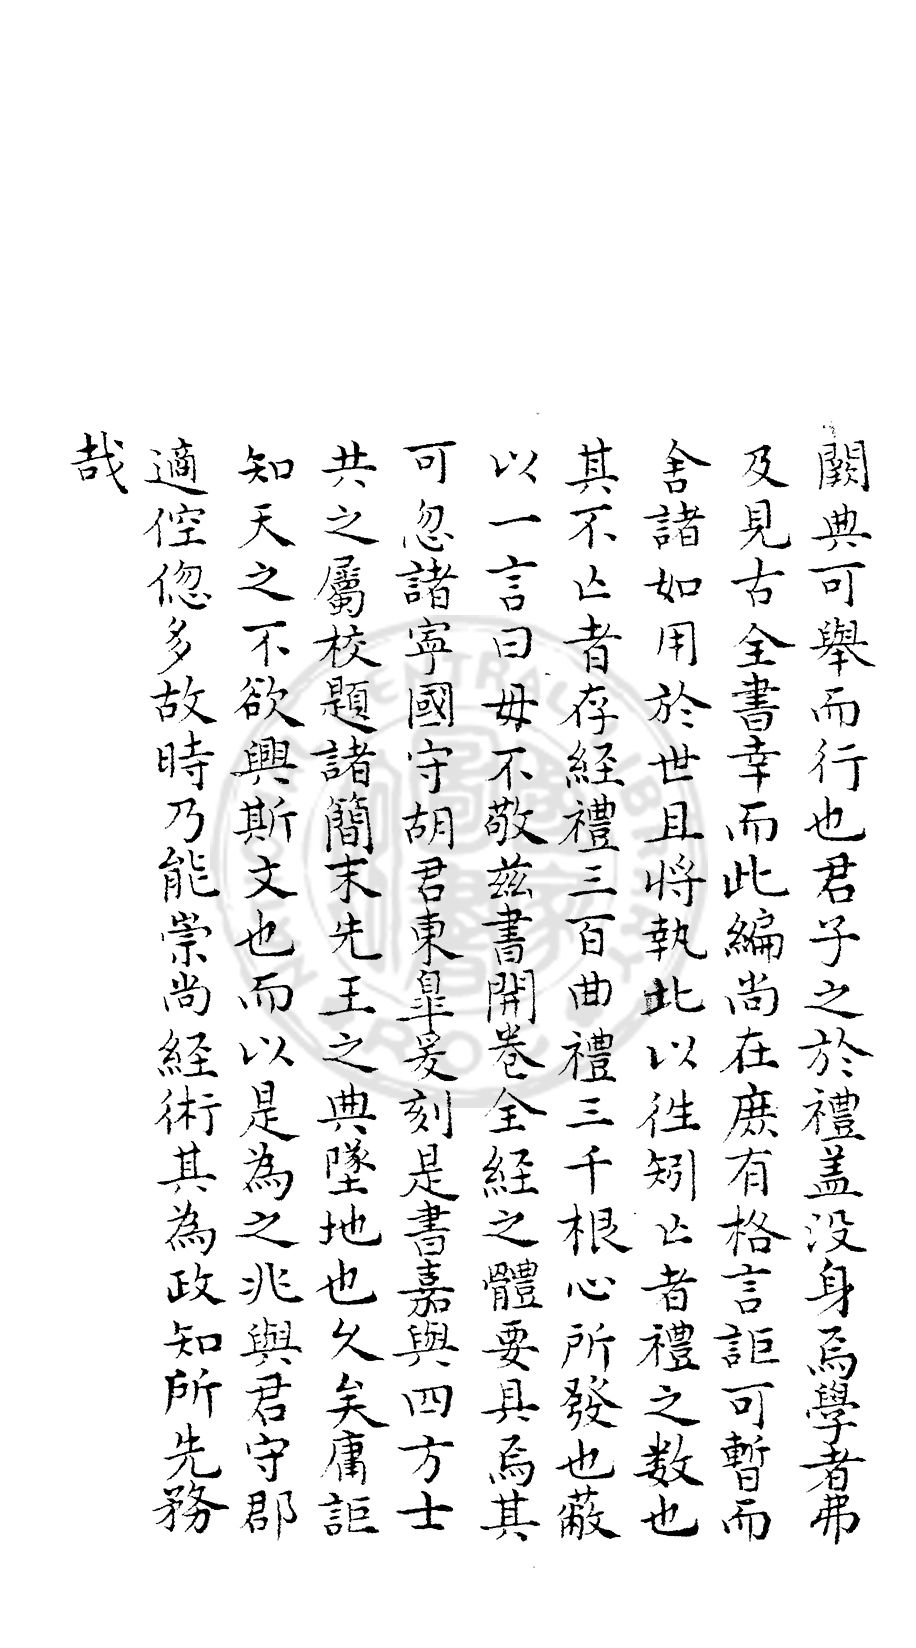 闕典可舉而行也君子之於禮盖没身焉學者弗
及見古全書幸而此編尚在庶有格言詎可暫而
舍諸如用於世且将執此以徃矧亡者禮之数也
其不亡者存経禮三百曲禮三千根心所發也蔽
以一言曰毋不敬兹書開卷全経之體要具焉其
可忽諸寧國守胡君東臯爰刻是書嘉與四方士
共之屬校題諸簡末先王之典墜地也久矣庸詎
知天之不欲興斯文也而以是為之兆與君守郡
適倥偬多故時乃能崇尚経術其為政知所先務
哉